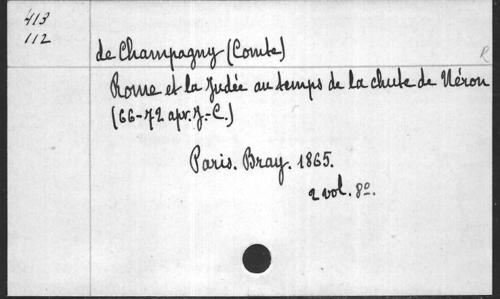 413
112
de Champagny (Comte)
R
Rome et la Judée au temps de la chute de Néron
(66-72 apr. J.-C.)
Paris. Bray. 1865.
2 vol. 8º.